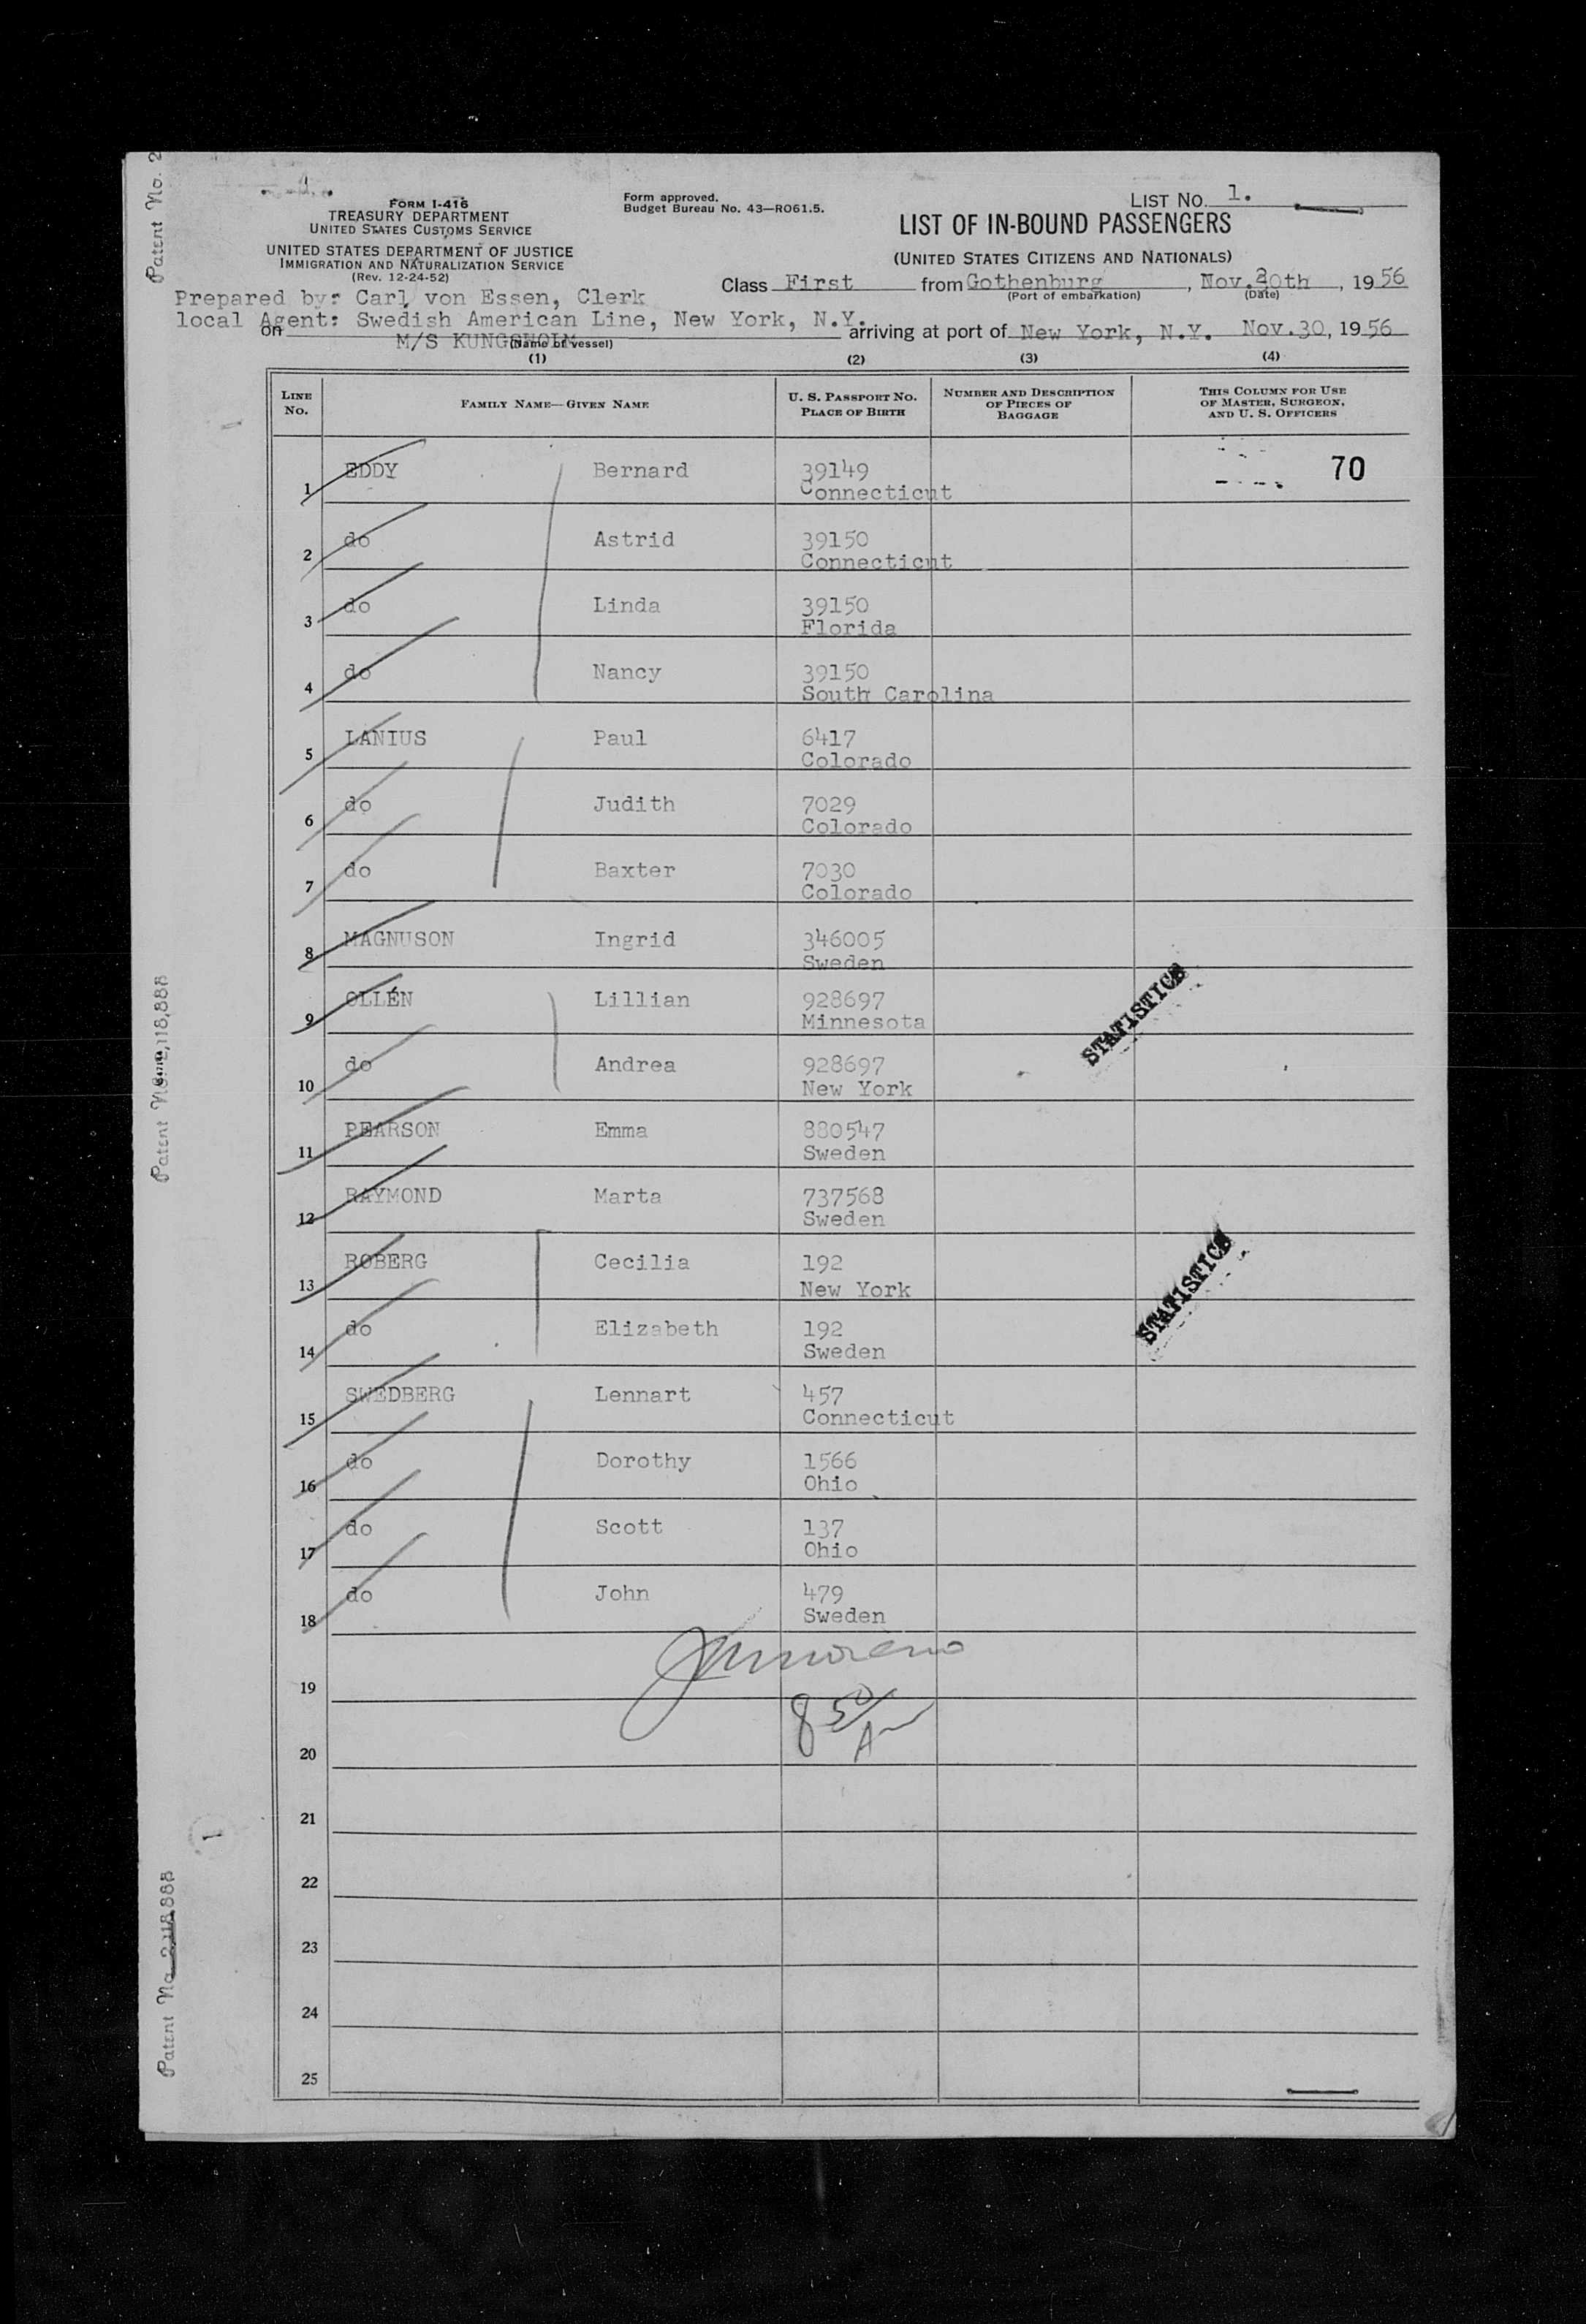 Form approved.
Budget Bureau No. 43—RO61.5.
FORM I-416
TREASURY DEPARTMENT
UNITED STATES CUSTOMS SERVICE
UNITED STATES DEPARTMENT OF JUSTICE
IMMIGRATION AND NATURALIZATION SERVICE
(Rev. 12-24-52)
LIST No. 1.
LIST OF IN-BOUND PASSENGERS
(UNITED STATES CITIZENS AND NATIONALS)
Class First from Gothenburg, Nov. 20th, 1956
(Port of embarkation) (Date)
Prepared by: Carl von Essen, Clerk
local Agent: Swedish American Line, New York, N.Y.
on M/S KUNGSHOLM arriving at port of New York, N.Y. Nov. 30, 1956
(Name of vessel)
(1) (2) (3) (4)
LINE No. FAMILY NAME—GIVEN NAME U. S. PASSPORT NO. PLACE OF BIRTH NUMBER AND DESCRIPTION OF PIECES OF BAGGAGE THIS COLUMN FOR USE OF MASTER, SURGEON, AND U. S. OFFICERS
1 EDDY Bernard 39149 70
Connecticut
2 do Astrid 39150
Connecticut
3 do Linda 39150
Florida
4 do Nancy 39150
South Carolina
5 LANIUS Paul 6417
Colorado
6 do Judith 7029
Colorado
7 do Baxter 7030
Colorado
8 MAGNUSON Ingrid 346005
Sweden
9 OLLÉN Lillian 928697
Minnesota
STATISTICS
10 do Andrea 928697
New York
11 PEARSON Emma 880547
Sweden
12 RAYMOND Marta 737568
Sweden
13 ROBERG Cecilia 192
New York
STATISTICS
14 do Elizabeth 192
Sweden
15 SWEDBERG Lennart 457
Connecticut
16 do Dorothy 1566
Ohio
17 do Scott 137
Ohio
18 do John 479
Sweden
19
8 50/A
20
21
22
23
24
25
Patent No. 2
Patent No. 2,118,888
Patent No. 2,118,888
1